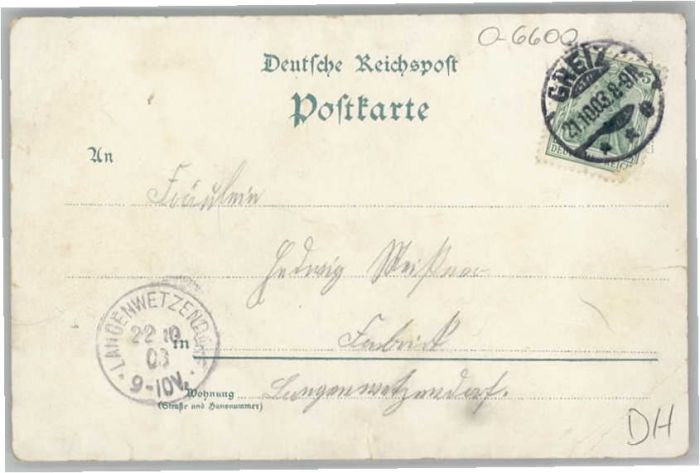 O-6600
Deutsche Reichspost
Postkarte
GREIZ
21.10.03. 8-9N.
5
DEUTSCHES REICH
An
Fräulein
Hedwig Meißner
in
Fabrik
Wohnung
(Straße und Hausnummer)
Langenwetzendorf.
LANGENWETZENDORF
22 10
03
9-10V.
DH